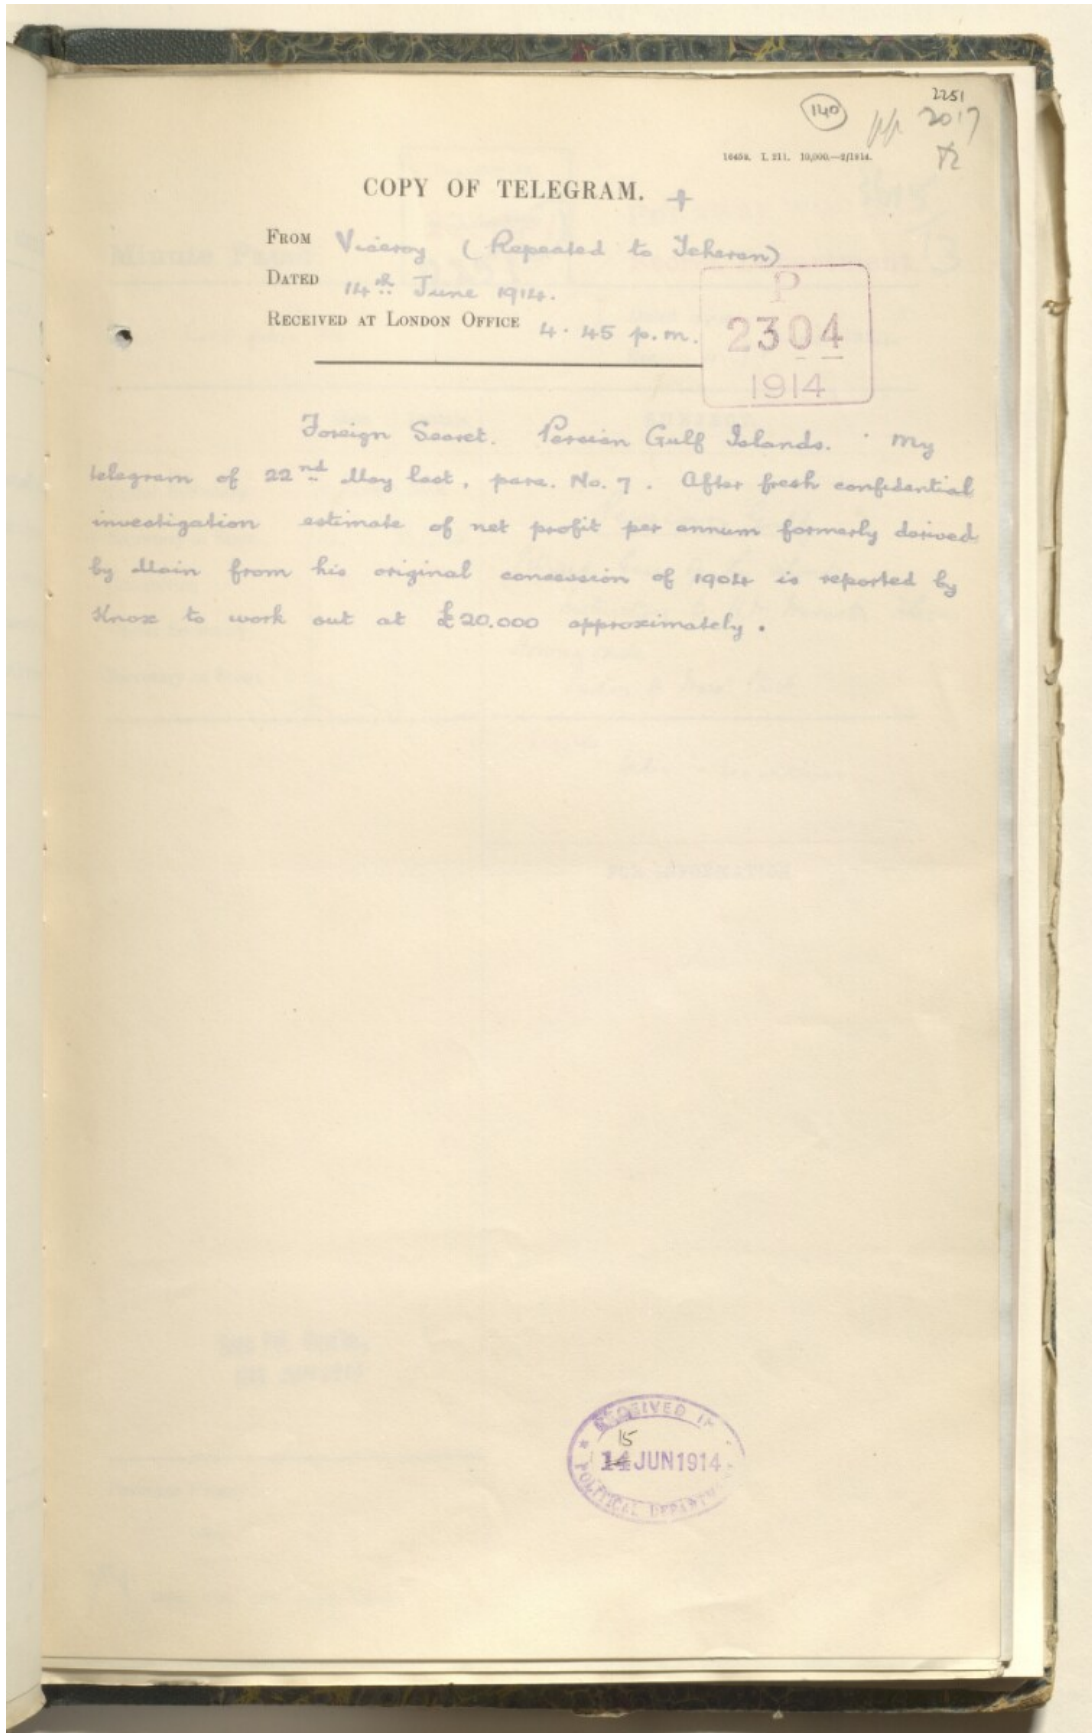 140
2251
pp 2017
16458. I. 211. 10,000.—2/1914.
COPY OF TELEGRAM. +
FROM Viceroy (Repeated to Teheran)
DATED 14th June 1914.
RECEIVED AT LONDON OFFICE 4.45 p.m.
P
2304
1914
Foreign Secret. Persian Gulf Islands. My
telegram of 22nd May last, para. No. 7. After fresh confidential
investigation estimate of net profit per annum formerly derived
by Main from his original concession of 1904 is reported by
Knox to work out at £20.000 approximately.
RECEIVED IN
15
14 JUN 1914
POLITICAL DEPARTMENT